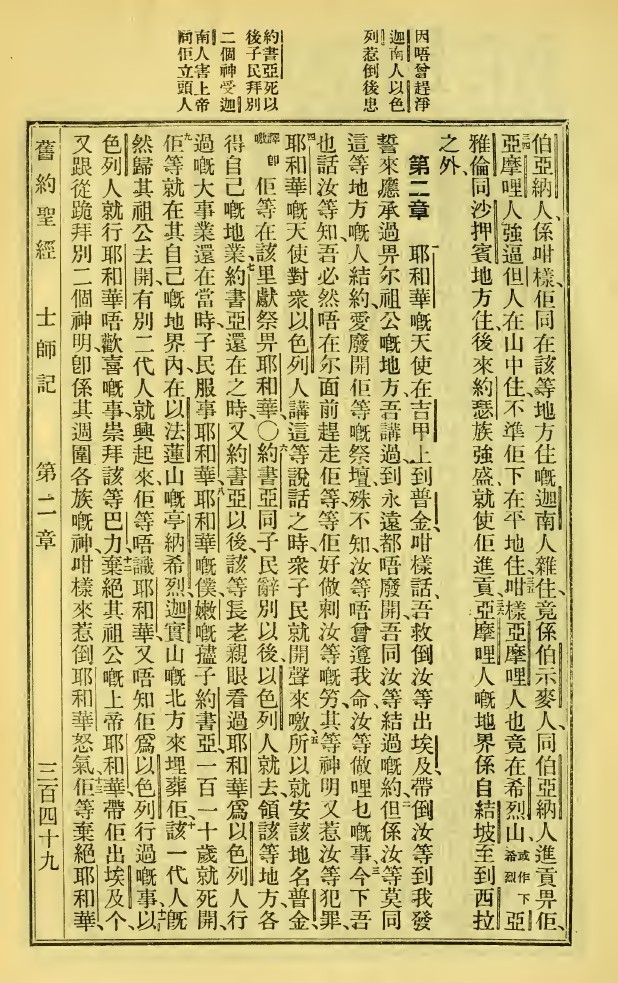 因唔曾趕淨
迦南人以色
列惹倒後患
約書亞死以
後子民拜別
二個神受迦
南人害上帝
同佢立頭人
伯亞納人、係咁樣佢同在該等地方住嘅迦南人雜住、竟係伯示麥人、同伯亞納人進貢畀佢、
三四亞摩哩人強逼但人在山中住、不準佢下在平地住、三五咁樣亞摩哩人也竟在希烈山、或作下希烈亞
雅倫同沙押賓地方住、後來約瑟族強盛、就使佢進貢、三六亞摩哩人嘅地界係自結坡至到西拉
之外、
第二章 一耶和華嘅天使在吉甲上到普金、咁樣話、吾救倒汝等出埃及、帶倒汝等到我發
誓來應承過畀尔祖公嘅地方、吾講過到永遠都唔廢開吾同汝等結過嘅約、二但係汝等莫同
這等地方嘅人結約、愛廢開佢等嘅祭壇、殊不知汝等唔曾遵我命、汝等做哩乜嘅事、三今下吾
也話汝等知、吾必然唔在尔面前趕走佢等、佢好做刺汝等嘅竻、其等神明又惹汝等犯罪、
四耶和華嘅天使對衆以色列人講這等說話之時、衆子民就開聲來噭、五所以就安該地名普金、
譯卽噭佢等在該里獻祭畀耶和華、〇六約書亞同子民辭別以後、以色列人就去領該等地方、各
得自己嘅地業、七約書亞還在之時、又約書亞以後、該等長老親眼看過耶和華爲以色列人行
過嘅大事業還在當時、子民服事耶和華、八耶和華嘅僕、嫩嘅孻子約書亞、一百一十歲就死開、
九佢等就在其自己嘅地界內、在以法蓮山嘅亭納希烈、迦實山嘅北方來埋葬佢、十該一代人旣
然歸其祖公去開、有別二代人就興起來、佢等唔識耶和華、又唔知佢爲以色列行過嘅事、十一以
色列人就行耶和華唔歡喜嘅事、崇拜該等巴力、十二棄絕其祖公嘅上帝耶和華、帶佢出埃及个、
又跟從跪拜別二個神明、卽係其週圍各族嘅神、咁樣來惹倒耶和華怒氣、十三佢等棄絕耶和華、
舊約聖經 士師記 第二章 三百四十九